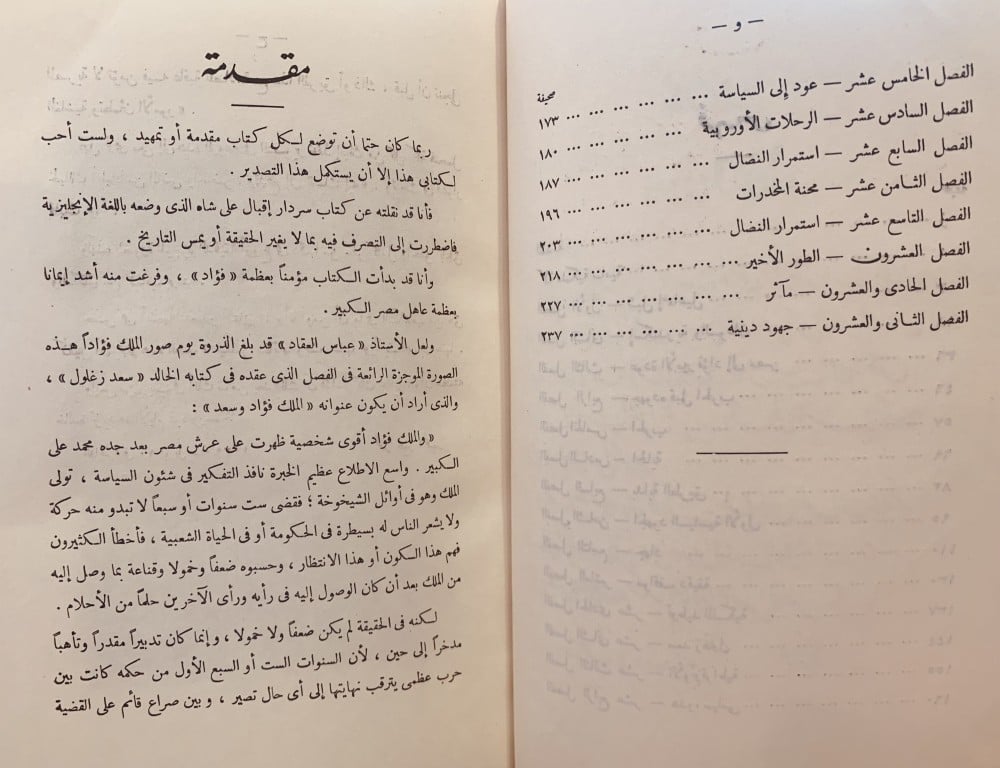 — و —
صحيفة
الفصل الخامس عشر — عود إلى السياسة ... ... ... ... ... ١٧٣
الفصل السادس عشر — الرحلات الأوروبية ... ... ... ... ١٨٠
الفصل السابع عشر — استمرار النضال ... ... ... ... ... ١٨٧
الفصل الثامن عشر — محنة المخدرات ... ... ... ... ... ١٩٦
الفصل التاسع عشر — استمرار النضال ... ... ... ... ... ٢٠٣
الفصل العشرون — الطور الأخير ... ... ... ... ... ... ... ٢١٨
الفصل الحادى والعشرون — مآثر ... ... ... ... ... ... ... ٢٢٧
الفصل الثانى والعشرون — جهود دينية ... ... ... ... ... ... ٢٣٧
مقدمة
ربما كان حتما أن توضع لكل كتاب مقدمة أو تمهيد ، ولست أحب
لكتابى هذا إلا أن يستكمل هذا التصدير .
فأنا قد نقلته عن كتاب سردار إقبال على شاه الذى وضعه باللغة الإنجليزية
فاضطررت إلى التصرف فيه بما لا يغير الحقيقة أو يمس التاريخ .
وأنا قد بدأت الكتاب مؤمناً بعظمة « فؤاد » ، وفرغت منه أشد إيمانا
بعظمة عاهل مصر الكبير .
ولعل الأستاذ « عباس العقاد » قد بلغ الذروة يوم صور الملك فؤاداً هذه
الصورة الموجزة الرائعة فى الفصل الذى عقده فى كتابه الخالد « سعد زغلول » ،
والذى أراد أن يكون عنوانه « الملك فؤاد وسعد » :
« والملك فؤاد أقوى شخصية ظهرت على عرش مصر بعد جده محمد على
الكبير . واسع الاطلاع عظيم الخبرة نافذ التفكير فى شئون السياسة ، تولى
الملك وهو فى أوائل الشيخوخة ؛ فقضى ست سنوات أو سبعاً لا تبدو منه حركة
ولا يشعر الناس له بسيطرة فى الحكومة أو فى الحياة الشعبية ، فأخطأ الكثيرون
فهم هذا السكون أو هذا الانتظار ، وحسبوه ضعفاً وخمولا وقناعة بما وصل إليه
من الملك بعد أن كان الوصول إليه فى رأيه ورأى الآخرين حلماً من الأحلام .
لكنه فى الحقيقة لم يكن ضعفاً ولا خمولا ، وإنما كان تدبيراً مقدراً وتأهباً
مدخراً إلى حين ، لأن السنوات الست أو السبع الأول من حكمه كانت بين
حرب عظمى يترقب نهايتها إلى أى حال تصير ، وبين صراع قائم على القضية